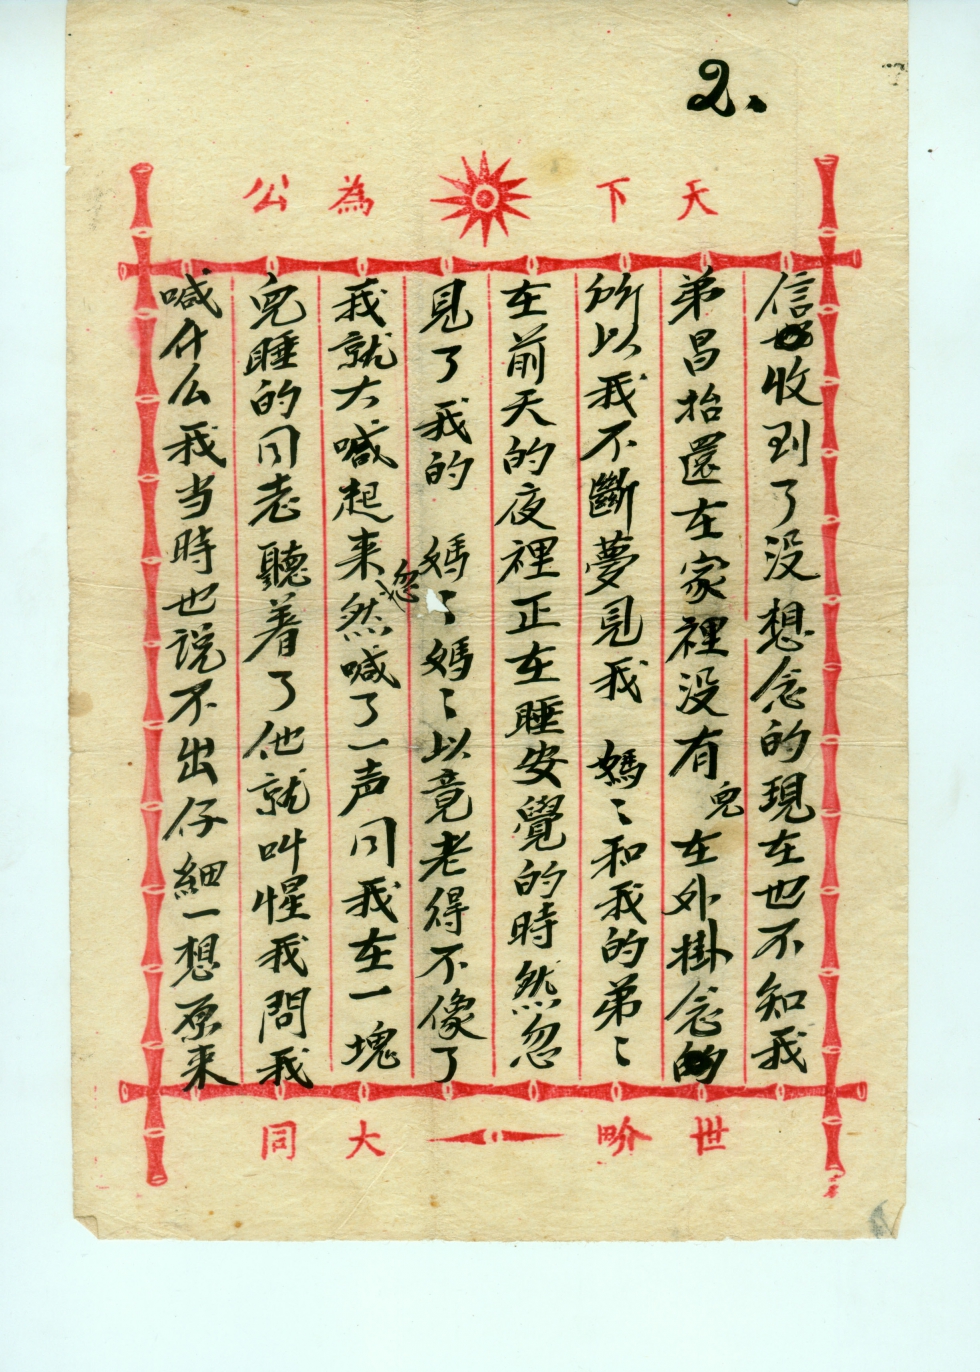 2.
天下為公
信收到了没想念的現在也不知我
弟昌抬還在家裡没有兒在外掛念的
所以我不斷夢見我 媽〻和我的弟〻
在前天的夜裡正在睡安覺的時然忽
見了我的 媽〻媽〻以竟老得不像了
我就大喊起来忽然喊了一声同我在一塊
兒睡的同志聽着了他就叫惺我問我
喊什么我当時也説不出仔細一想原来
世畍大同